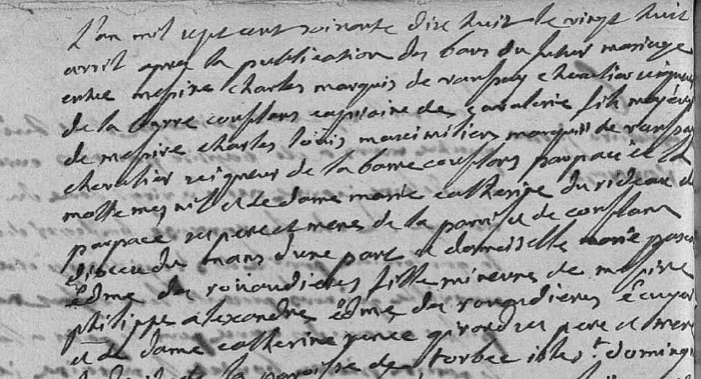 L'an mil sept cent soixante dix huit le vingt huit
avril apres la publication des bans du futur mariage
entre messire charles marquis de chevalier seigneur
de la barre conflans capitaine de cavalerie fils majeur
de messire charles loüis maximilien marquis de
chevalier seigneur de la barre conflans et la
motte mesnil et de dame marie catherine du rideau de
ses pere et mere de la parroisse de conflans
du mans d'une part et damoiselle marie
edme des rouaudieres fille mineure de messire
philippe alexandre edme des rouaudieres ecuyer
et de dame catherine renée ses pere et mere
de la paroisse de torbec isle st doming